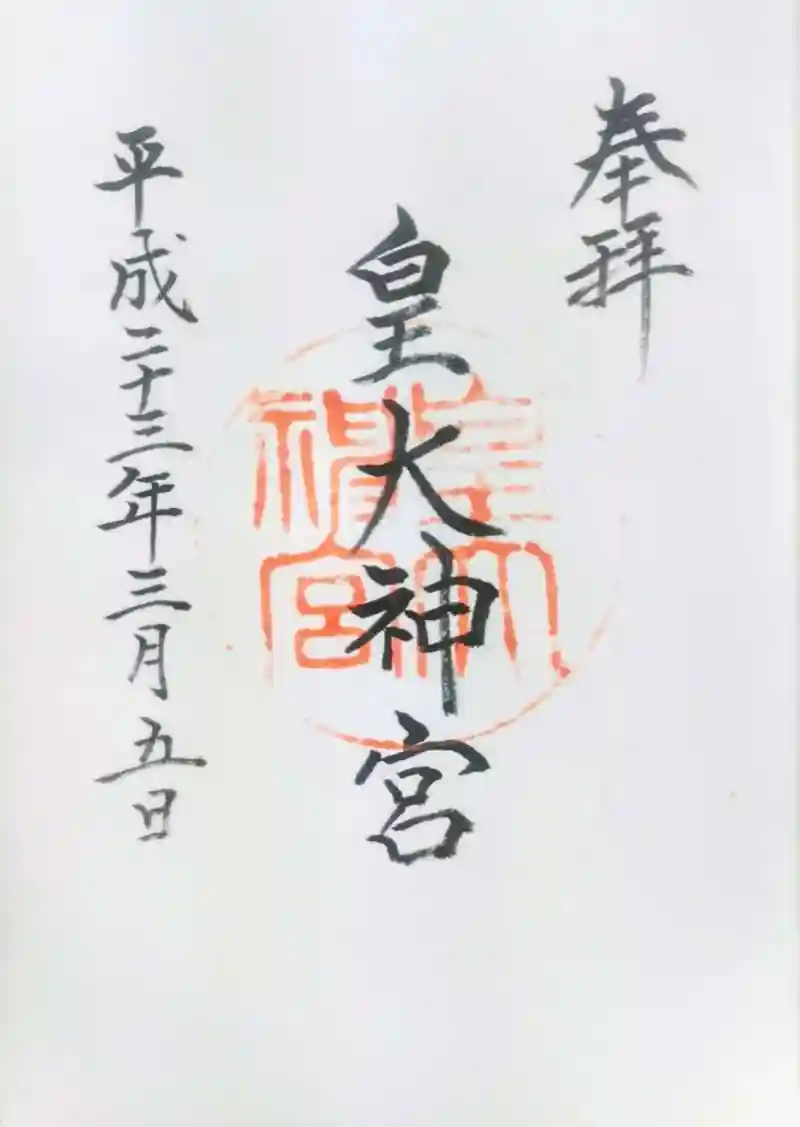 奉拝
皇大神宮
皇大神宮
平成二十三年三月五日